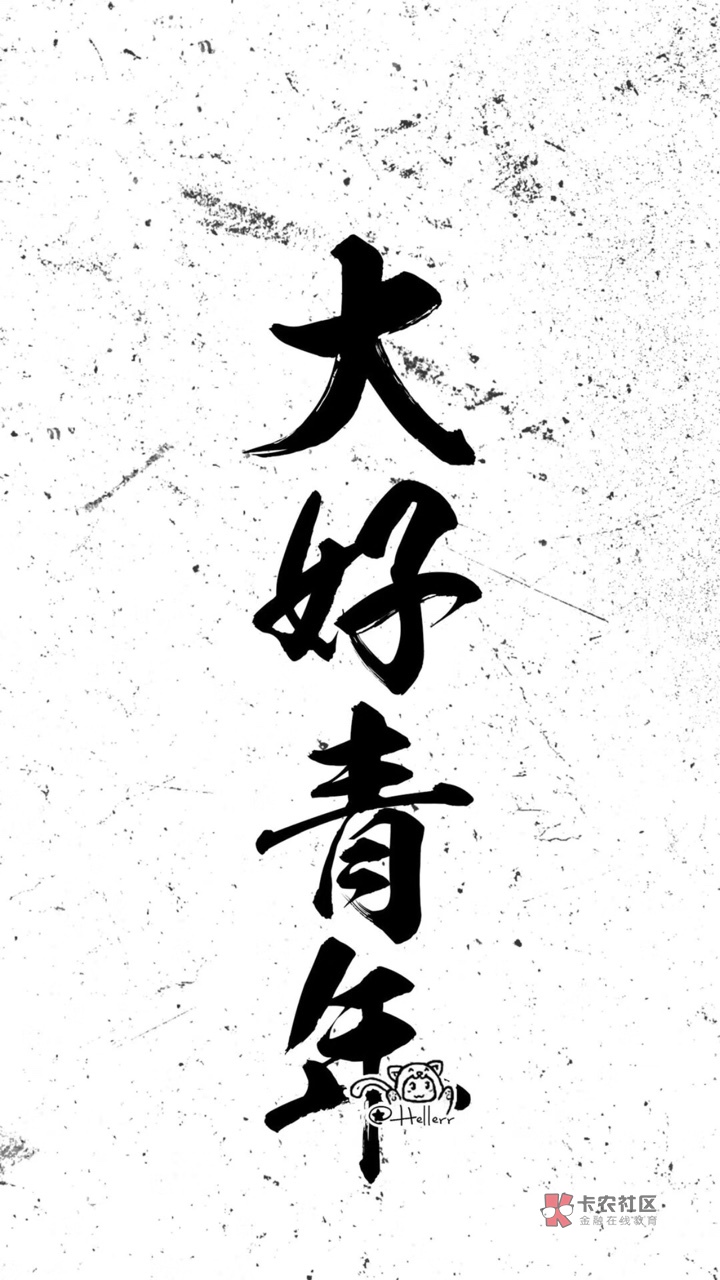 大好青年
@Hellerr
卡农社区
金融在线教育